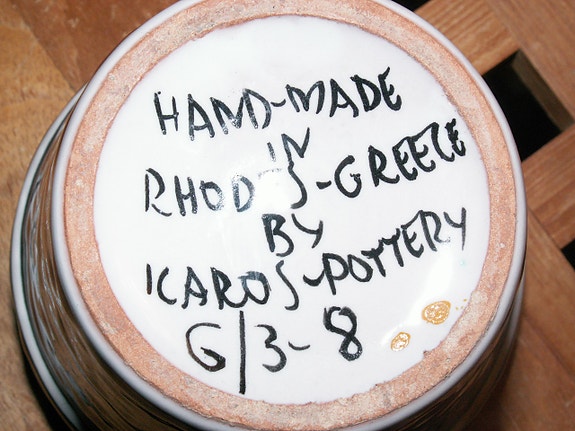 HAND-MADE
IN
RHODOS-GREECE
BY
ICAROS-POTTERY
G/3-8